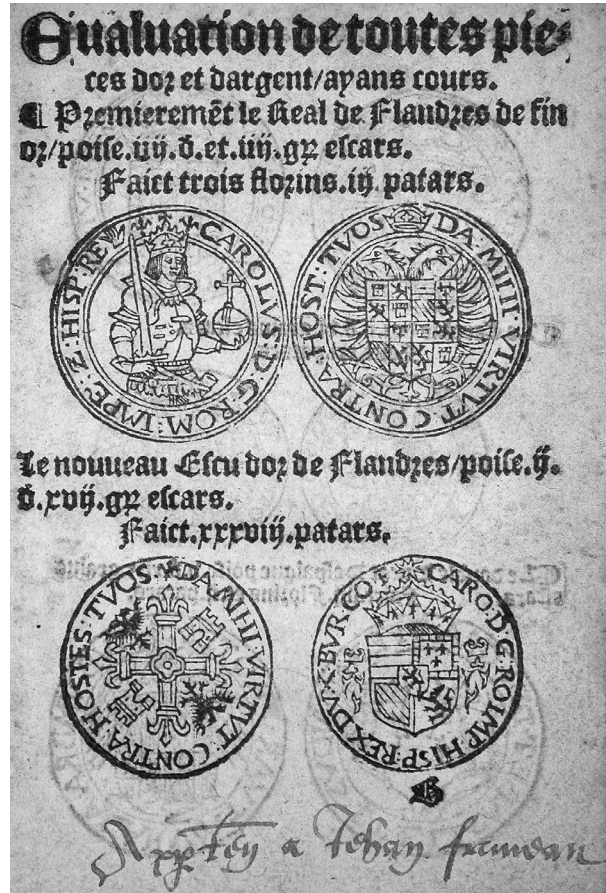 Eualuation de toutes pie⸗
ces dor et dargent/ayans cours.
¶ Premieremẽt le Real de Flandres de fin
or/poise.iiij.d̄.et.iiij.gr̃ escars.
Faict trois florins.iij. patars.
CAROLVS·D·G·ROM·IMPE·Z·HISP·REX
DA·MIHI·VIRTVT·CONTRA·HOST:TVOS
Le nouueau Escu dor de Flandres/poise.ij.
d̄.xvij.gr̃ escars.
Faict.xxxviij.patars.
DA·MIHI·VIRTVT·CONTRA·HOSTES·TVOS
CARO·D·G·RO·IMP·HISP·REX·DVX·BVR·CO
B
a Jehan